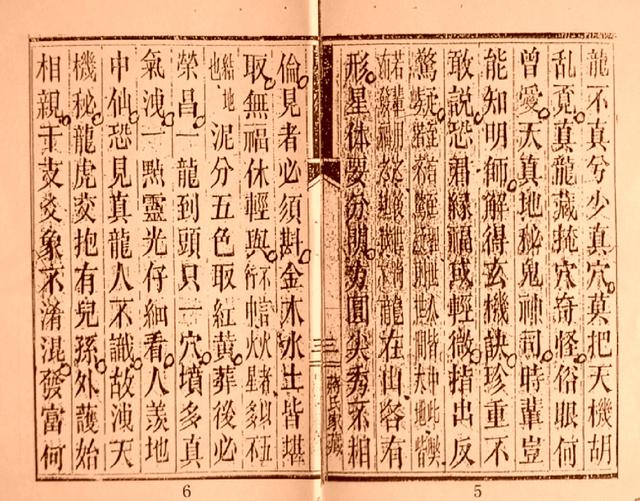 龍不真兮少真穴莫把天機胡
乱覓真龍藏掩穴奇怪俗眼何
曾愛天真地秘鬼神司時輩豈
能知明師解得玄機訣珍重不
敢說恐君緣福或輕微指出反
驚疑
龍在山谷有
形星体要分明方圓尖秀不相
三
倫見者必須斟金木水土皆堪
取無福休輕與不言火者以五行中火星多不
結地也泥分五色取紅黄葬後必
榮昌一龍到頭只一穴墳多真
氣洩一點靈光仔細看人羨地
中仙恐見真龍人不識故洩天
機秘龍虎交抱有兒孫外護始
相親干支爻象不淆混發富何
6
5